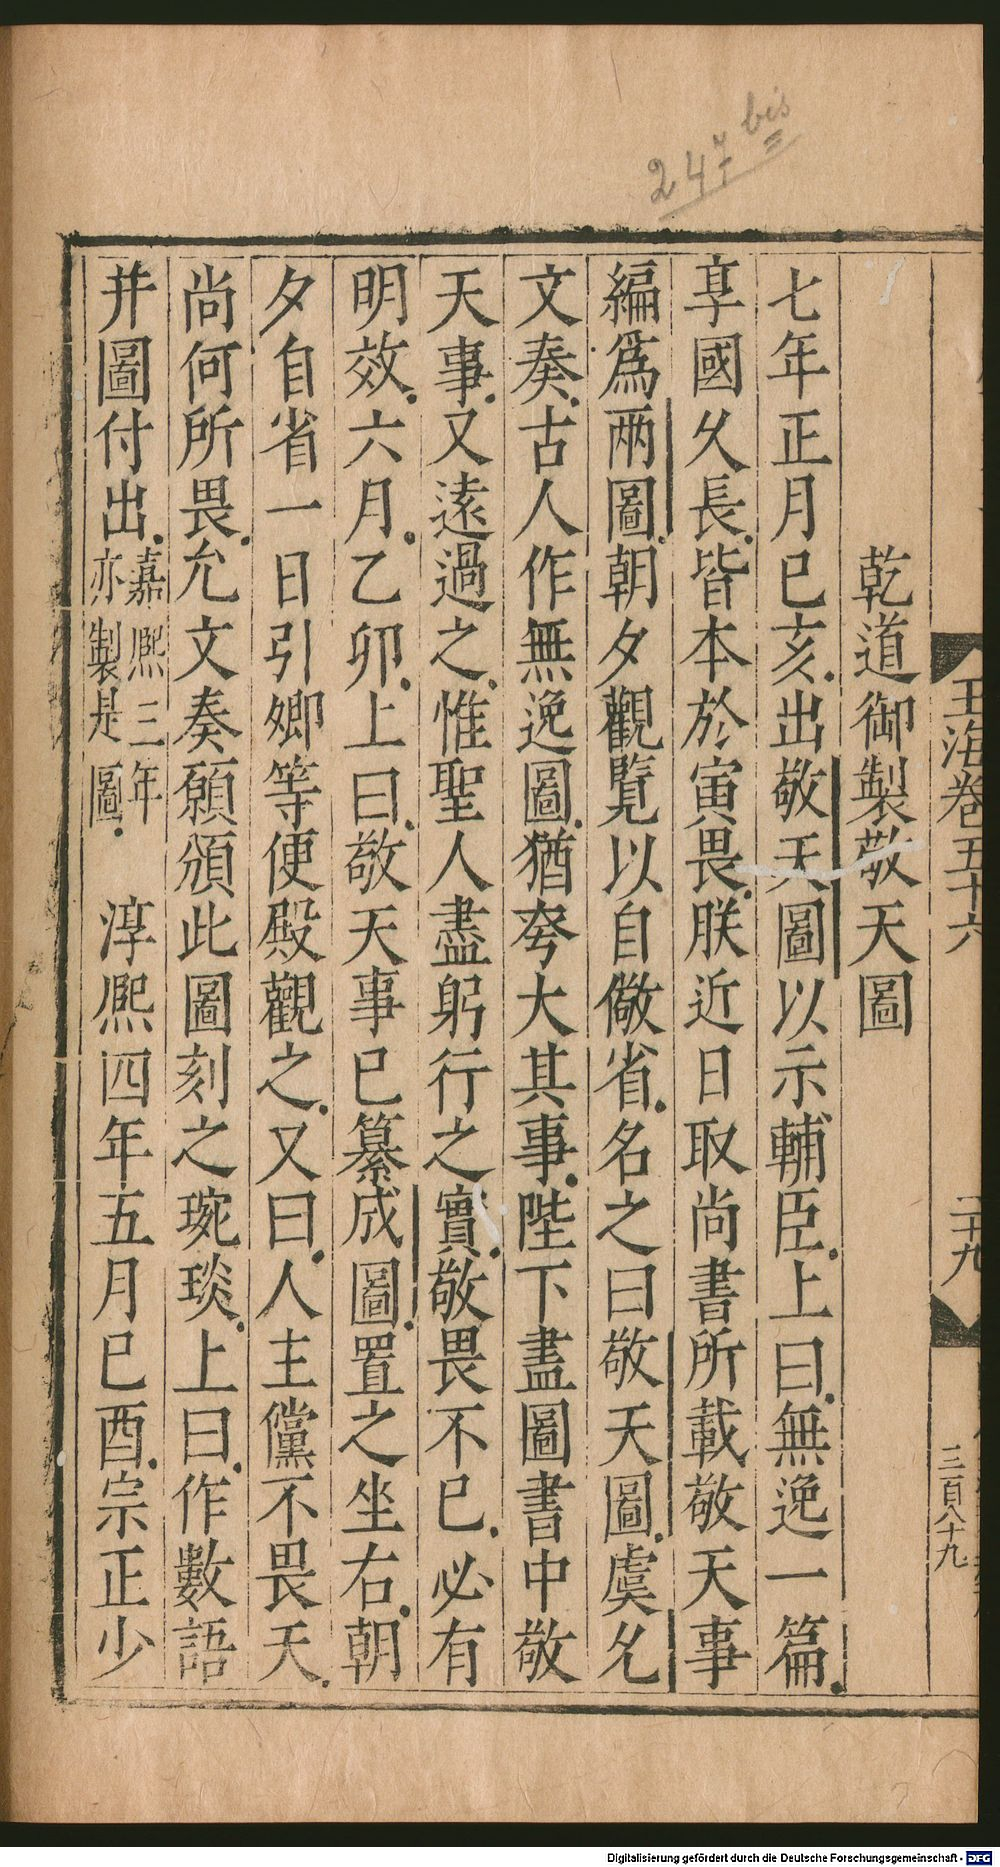 247 bis
玉海卷五十六
二十九
三百八十九
乾道御製敬天圖
七年正月己亥出敬天圖以示輔臣上曰無逸一篇
享國久長皆本於寅畏朕近日取尚書所載敬天事
編爲兩圖朝夕觀覽以自儆省名之曰敬天圖虞允
文奏古人作無逸圖猶夸大其事陛下盡圖書中敬
天事又遠過之惟聖人盡躬行之實敬畏不已必有
明效六月乙卯上曰敬天事已纂成圖置之坐右朝
夕自省一日引卿等便殿觀之又曰人主儻不畏天
尚何所畏允文奏願頒此圖刻之琬琰上曰作數語
并圖付出嘉熙三年亦製是圖 淳熙四年五月己酉宗正少
Digitalisierung gefördert durch die Deutsche Forschungsgemeinschaft - DFG